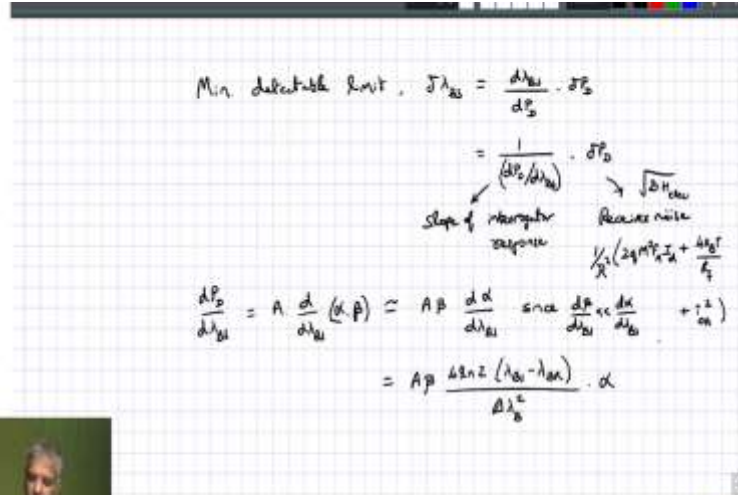 Min. detectable limit, δλ_BS = dλ_BS / dP_D . δP_D
= 1 / (dP_D/dλ_BS) . δP_D
Slope of interrogator response
Receiver noise
dP_D / dλ_BS = A d / dλ_BS (α.β) ≃ Aβ dα / dλ_BS since dβ / dλ_BS << dα / dλ_BS
= Aβ 4ln2 (λ_BS - λ_BR) / Δλ_B^2 . α